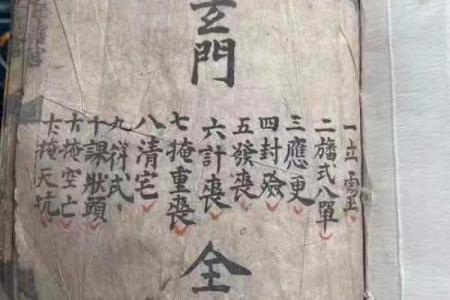 玄門
一立雲五
二旛式八單
三應更
四封殮
五發喪
六計喪
七掩重喪
八清宅
九符式
十課狀頭
十掩空亡
十掩天坑
全